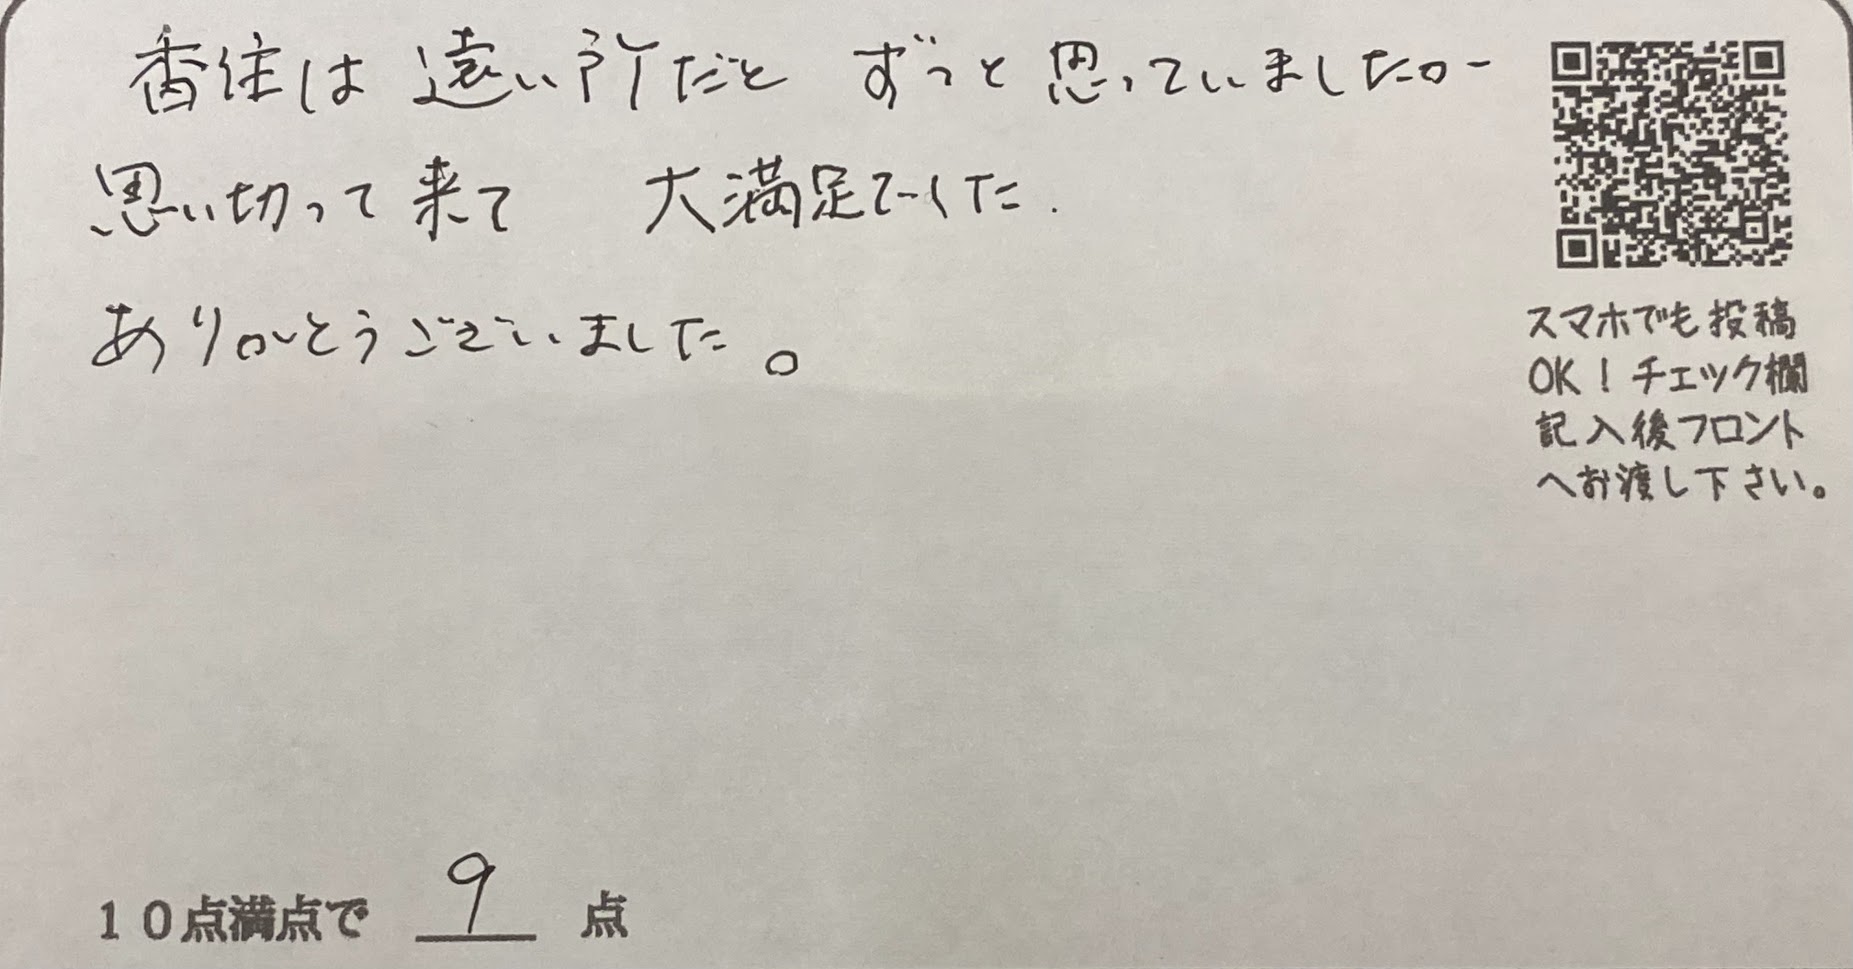 香住は遠い所だと ずっと思っていましたが
思い切って来て 大満足でした.
ありがとうございました。
スマホでも投稿
OK！チェック欄
記入後フロント
へお渡し下さい。
10点満点で 9 点